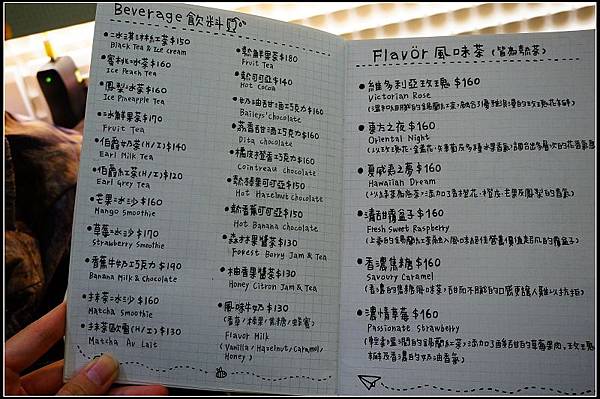 Beverage 飲料
冰淇淋紅茶 $150
Black Tea & Ice cream
蜜桃冰茶 $160
Ice Peach Tea
鳳梨冰茶 $160
Ice Pineapple Tea
冰鮮果茶 $170
Fruit Tea
伯爵奶茶(H/I) $140
Earl Milk Tea
伯爵紅茶(H/I) $120
Earl Grey Tea
芒果冰沙 $160
Mango Smoothie
草莓冰沙 $170
Strawberry Smoothie
香蕉牛奶巧克力 $190
Banana Milk & Chocolate
抹茶冰沙 $160
Matcha Smoothie
抹茶歐蕾(H/I) $130
Matcha Au Lait
熱鮮果茶 $180
Fruit Tea
熱可可亞 $140
Hot Cocoa
奶油甜酒巧克力 $160
Baileys' Chocolate
荔香甜酒巧克力 $160
Dita chocolate
橘皮橙香巧克力 $160
Cointreau chocolate
熱榛果可可亞 $150
Hot Hazelnut Chocolate
熱香蕉可可亞 $150
Hot Banana Chocolate
森林果醬茶 $130
Forest Berry Jam & Tea
柚香果醬茶 $130
Honey Citron Jam & Tea
風味牛奶 $130
(香草/榛果/焦糖/蜂蜜)
Flavor Milk
(Vanilla/Hazelnut/Caramel/
Honey)
Flavor 風味茶 (皆為熱茶)
維多利亞玫瑰 $160
Victorian Rose
東方之夜 $160
Oriental Night
夏威夷之夢 $160
Hawaiian Dream
清甜覆盆子 $160
Fresh Sweet Raspberry
香濃焦糖 $160
Savoury Caramel
濃情草莓 $160
Passionate Strawberry